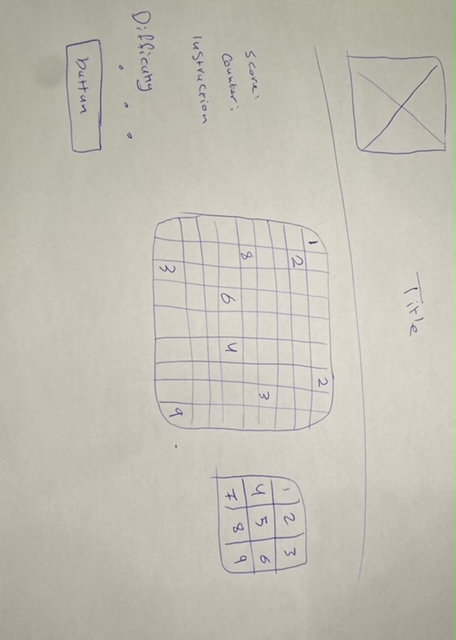 Title
Score:
Counter:
Instruction
Difficulty
button
1 2
2
3
8
6 4
3 9
1 2 3
4 5 6
7 8 9